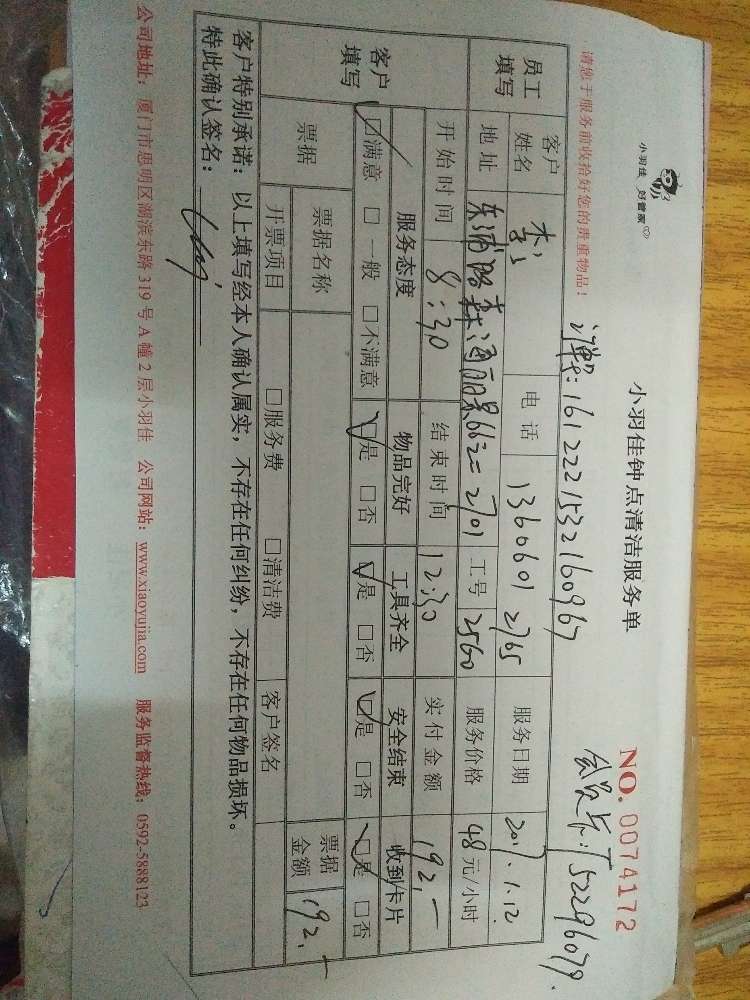 小羽佳 好管家
小羽佳钟点清洁服务单
NO. 0074172
请您于服务前收拾好您的贵重物品！
订单:1612221532160967
会员卡:T52296079.
员工填写
客户姓名 李 电话 13606012765 服务日期 2017.1.12
地址 东浦路森海丽景66之二2701 工号 2560 服务价格 48元/小时
开始时间 8:30 结束时间 12:30 实付金额 192.-
客户填写
服务态度 物品完好 工具齐全 安全结束 收到卡片
☑满意 □一般 □不满意 ☑是 □否 ☑是 □否 ☑是 □否 ☑是 □否
票据 票据名称 票据金额 192.-
开票项目 □服务费 □清洁费 客户签名
客户特别承诺：以上填写经本人确认属实，不存在任何纠纷，不存在任何物品损坏。
特此确认签名：
公司地址：厦门市思明区湖滨东路319号A幢2层小羽佳 公司网站：www.xiaoyujia.com 服务监督热线：0592-5888123